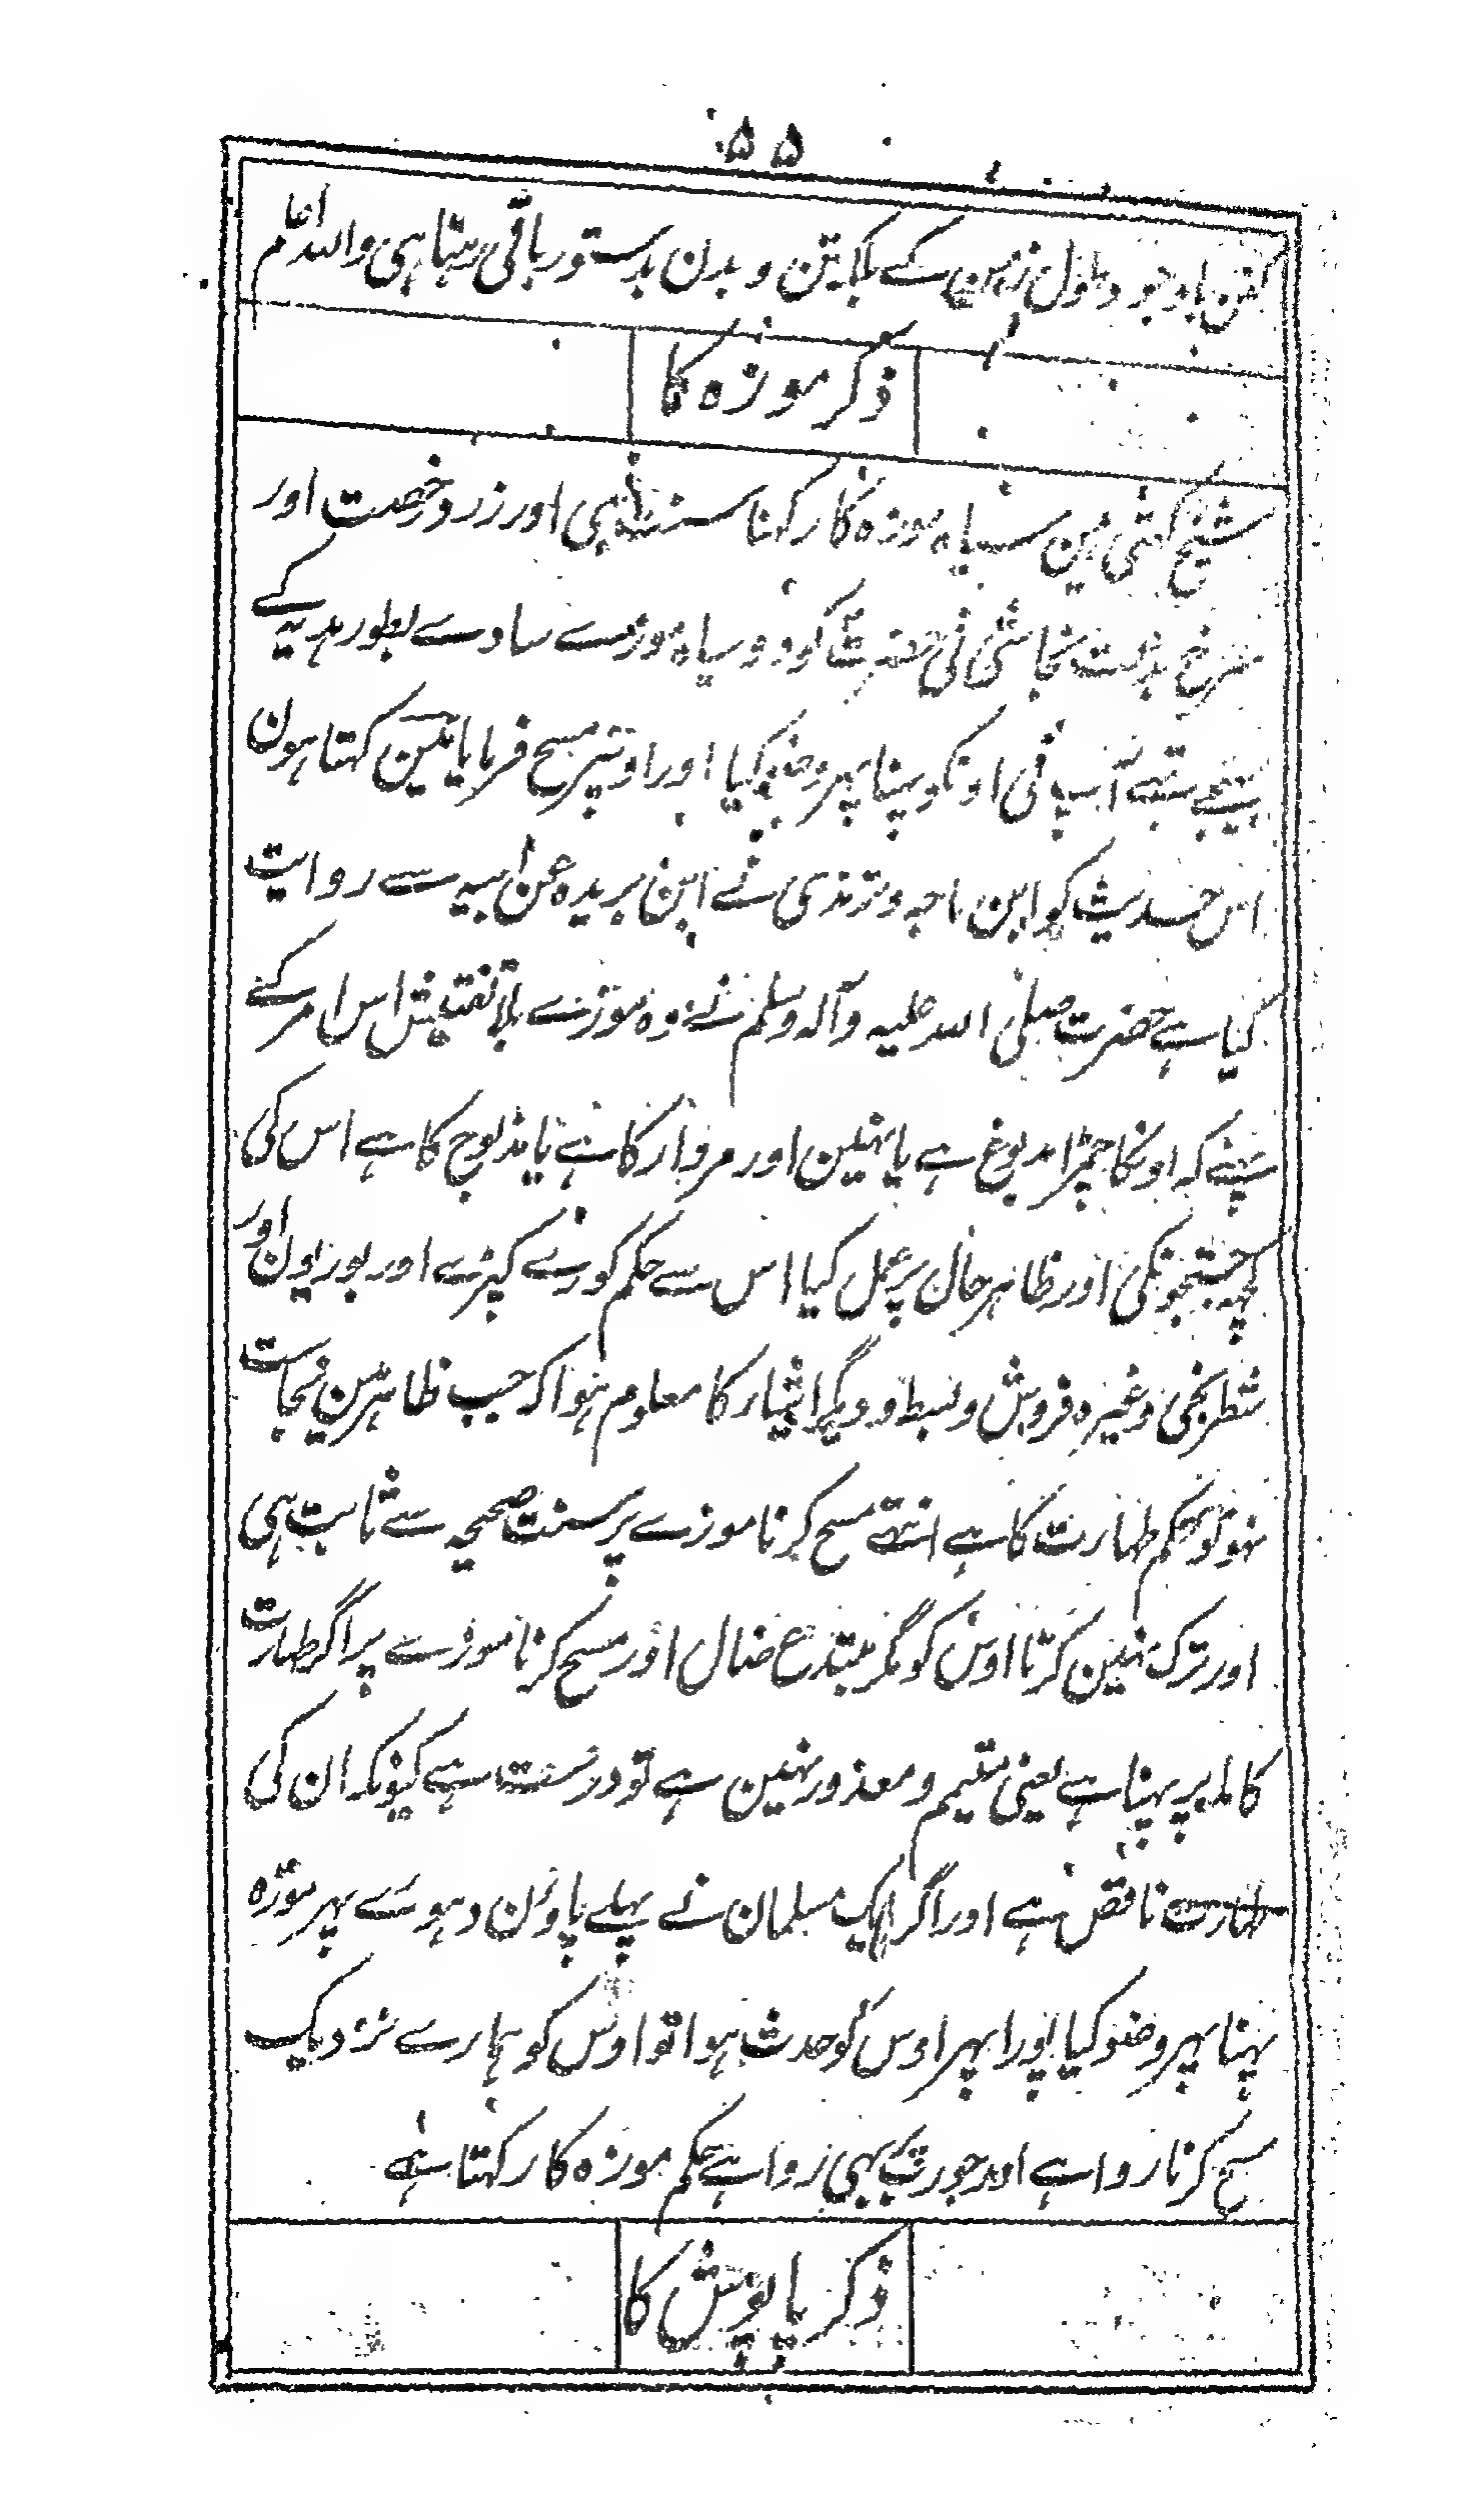 ۵۵
کفن باوجود طول زمن کے بلابتن و بدن بدستور باقی رہتا ہی واللہ اعلم
ذکر موزہ کا
شیخ کہتی ہین سیاہ موزہ کا رکہنا سنت ہی اور زرد رخصت اور
سرخ بدعت نجاشی نی حضرت کو دو سیاہ موزے سادے بطور ہدیہ کے
بہیجے تہے آپ نی اونکو پہنا پہر وضو کیا اور اونپر مسح فرمایا مین کہتا ہون
اس حدیث کو ابن ماجہ و ترمذی نے ابن بریدہ عن ابیہ سے روایت
کیا ہے حضرت صلی اللہ علیہ وآلہ وسلم نے وہ موزے بلا تفتیش اس امر کے
پہنے کہ اونکا چمڑا مدبوغ ہے یا نہین اور مردار کا ہے یا مذبوح کا ہے اس کی
کچہہ جستجو نکی اور ظاہر حال پر عمل کیا اس سے حکم کورے کپڑے اور بوریون اور
شطرنجی وغیرہ فروش و بسط و دیگر اشیار کا معلوم ہوا کہ جب ظاہر مین نجاست
نہو تو حکم طہارت کا ہے انتہے مسح کرنا موزے پر سنت صحیحہ سے ثابت ہی
اور ترک نہین کرتا اوس کو مگر مبتدع ضال اور مسح کرنا موزے پر اگر طہارت
کاملہ پر پہنا ہے یعنی متیمم و معذور نہین ہے تو درست ہے کیونکہ ان کی
طہارت ناقص ہے اور اگر ایک مسلمان نے پہلے پاون دہوے پہر موزہ
پہنا پہر وضو کیا پورا پہر اوس کو حدث ہوا تو اوس کو ہمارے نزدیک
مسح کرنا روا ہے اور جورب بہی روا ہے حکم موزہ کا رکہتا ہے
ذکر پاپوش کا